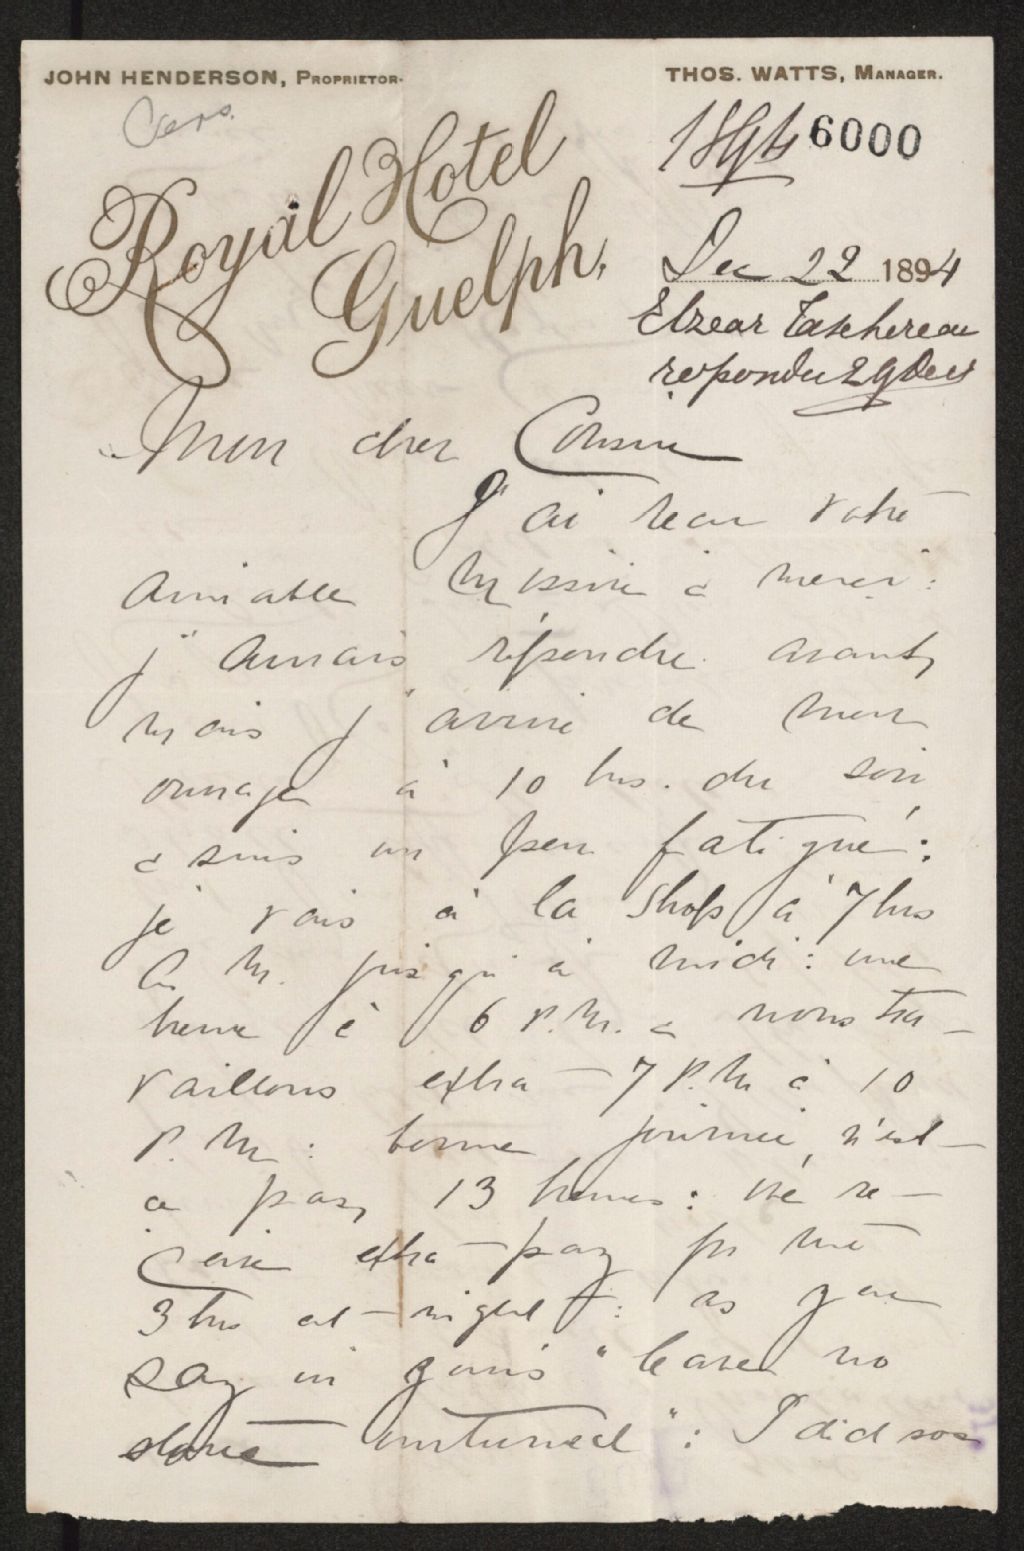 JOHN HENDERSON, PROPRIETOR.
THOS. WATTS, MANAGER.
Pers.
1894 6000
Royal Hotel
Guelph,
Dec 22 1894
Elzear Taschereau
repondu 29 Dec
Mon cher Cousin
J'ai recu votre
aimiable missive & merci:
j'aurais répondre avant,
mais j'arrive de mon
ouvrage à 10 hrs. du soir
& suis un peu fatigué:
je vais à la Shop à 7 hrs
A.M. jusqu'à midi: une
heure à 6 P.M. & nous tra-
vaillons extra 7 P.M à 10
P.M: bonne journée, n'est-
ce pas, 13 heures: We re-
ceive extra pay for the
3 hrs at night: as you
say in yours "leave no
stone unturned": I did so